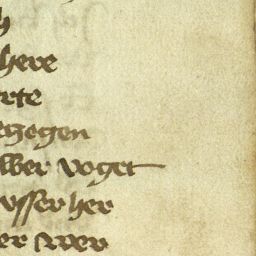 h
here
rte
ezogen
lber voget
vsser her
er swer